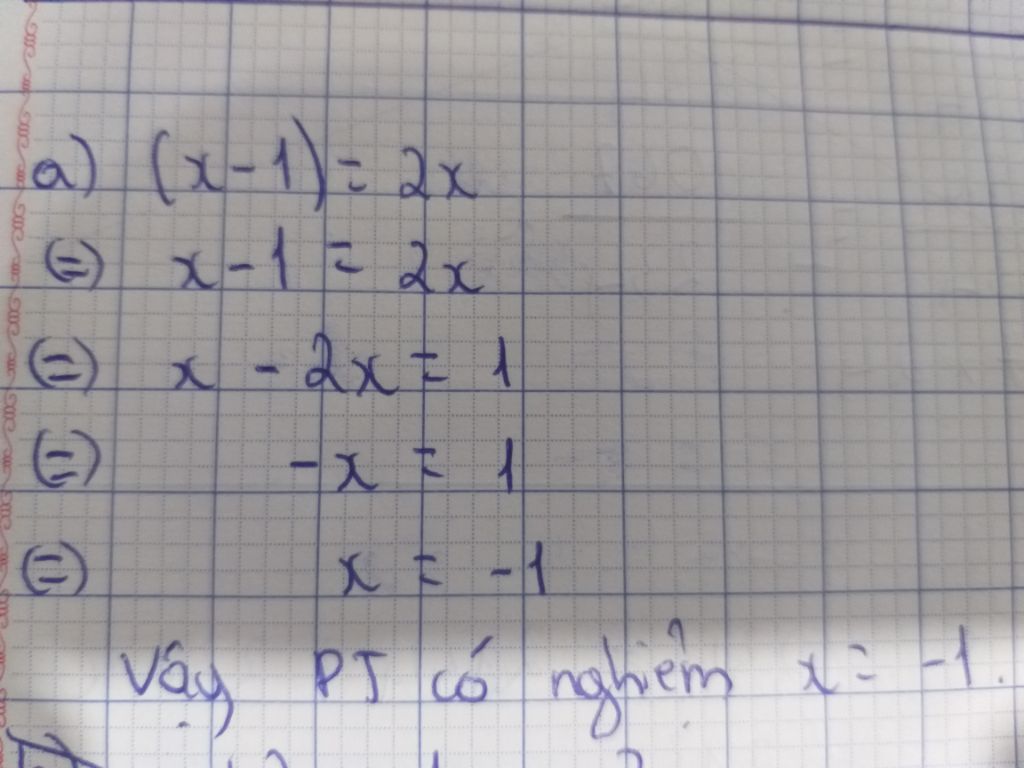 a) (x - 1) = 2x
(=) x - 1 = 2x
(=) x - 2x = 1
(=) -x = 1
(=) x = -1
Vậy PT có nghiệm x = -1.